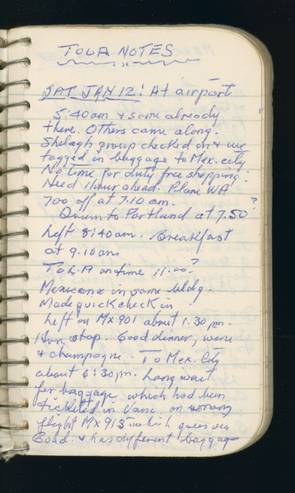 TOUR NOTES
SAT JAN 12: At airport
5:40am & some already
there. Others came along.
Shelagh group checked in & we
tagged in baggage to Mex. City
No time for duty free shopping.
Need 1 hour ahead. Plane WA
700 off at 7.10 am.
Down to Portland at 7.50?
Left 8:40am. Breakfast
at 9.10am
To L.A on time 11.00?
Mexicana in same bldg.
Made quick check in
Left on MX 901 about 1.30 pm.
stop. Good dinner, wine
& champagne. To Mex. City
about 6:30 pm. Long wait
for baggage which had been
ticketed in Vanc. on wrong
flight MX 915 which goes via
Guad. & has different baggage